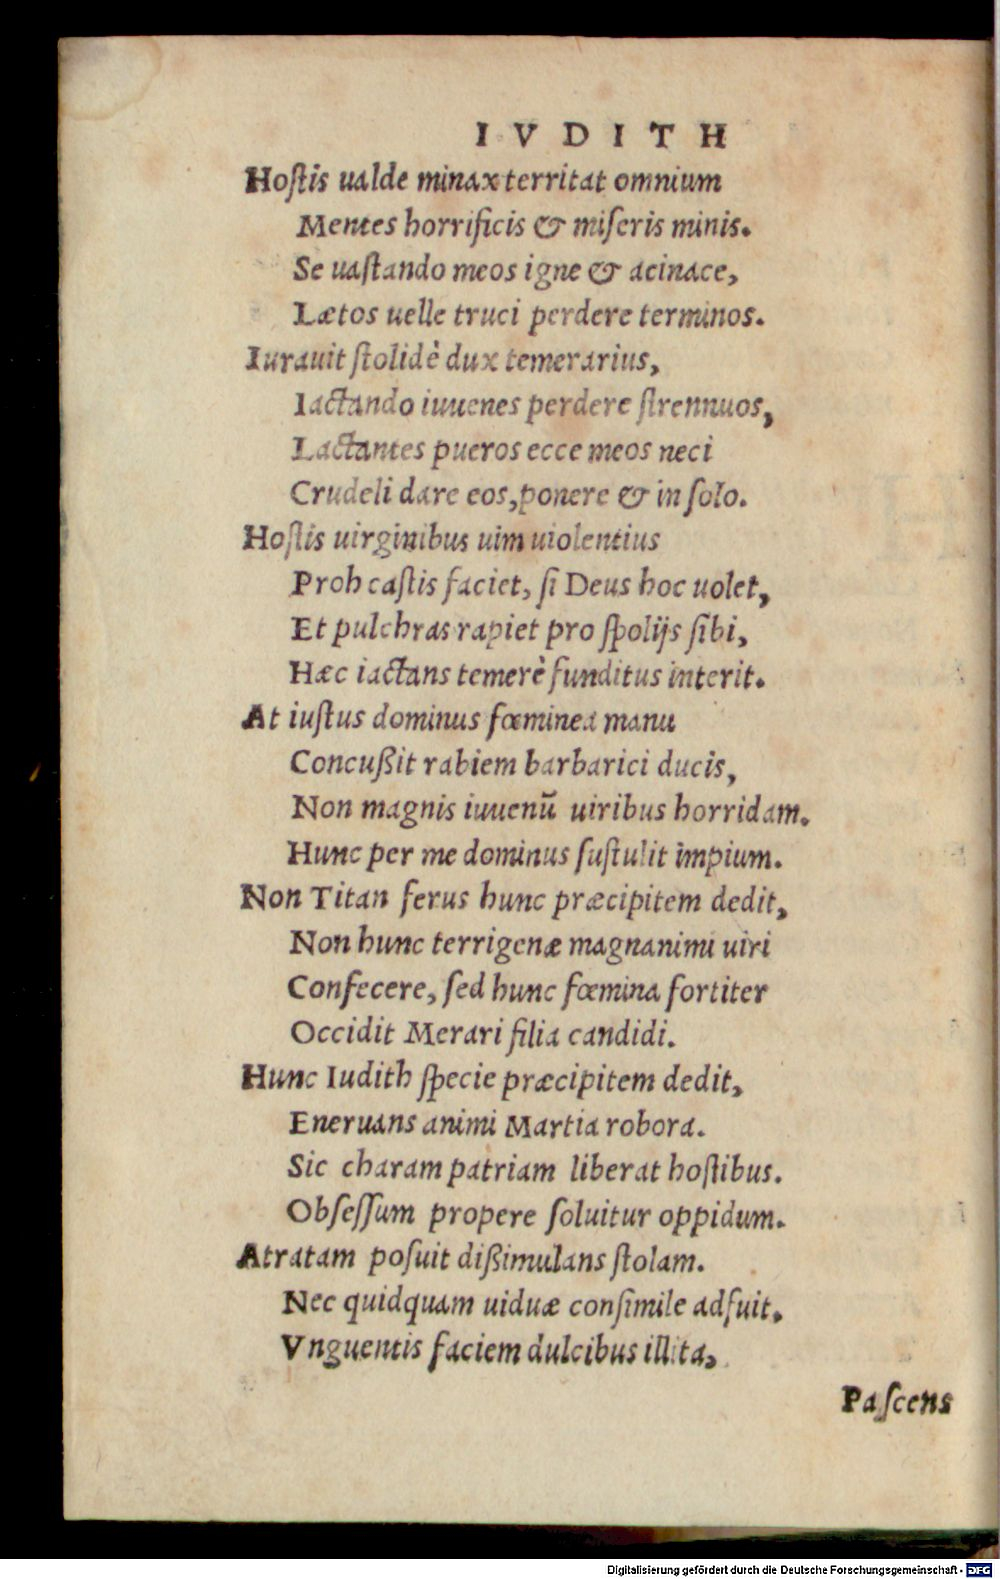 IVDITH
Hostis ualde minax territat omnium
Mentes horrificis & miseris minis.
Se uastando meos igne & acinace,
Lætos uelle truci perdere terminos.
Iurauit stolidè dux temerarius,
Iactando iuuenes perdere strennuos,
Lactantes pueros ecce meos neci
Crudeli dare eos, ponere & in solo.
Hostis uirginibus uim uiolentius
Proh castis faciet, si Deus hoc uolet,
Et pulchras rapiet pro spolijs sibi,
Hæc iactans temerè funditus interit.
At iustus dominus fœminea manu
Concußit rabiem barbarici ducis,
Non magnis iuuenū uiribus horridam.
Hunc per me dominus sustulit impium.
Non Titan ferus hunc præcipitem dedit,
Non hunc terrigenæ magnanimi uiri
Confecere, sed hunc fœmina fortiter
Occidit Merari filia candidi.
Hunc Iudith specie præcipitem dedit,
Eneruans animi Martia robora.
Sic charam patriam liberat hostibus.
Obsessum propere soluitur oppidum.
Atratam posuit dißimulans stolam.
Nec quidquam uiduæ consimile adfuit.
Vnguentis faciem dulcibus illita,
Pascens
Digitalisierung gefördert durch die Deutsche Forschungsgemeinschaft - DFG